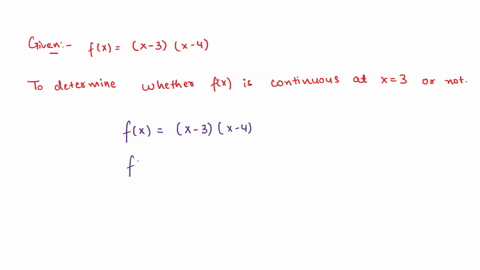 Given:- f(x) = (x-3) (x-4)
To determine whether f(x) is continuous at x=3 or not.
f(x) = (x-3) (x-4)
f